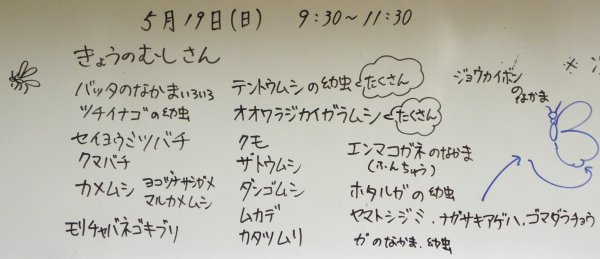 5月19日(日) 9:30~11:30
きょうのむしさん
バッタのなかまいろいろ
ツチイナゴの幼虫
セイヨウミツバチ
クマバチ
カメムシ ヨコヅナサシガメ
マルカメムシ
モリチャバネゴキブリ
テントウムシの幼虫 たくさん
オオワラジカイガラムシ たくさん
クモ
ザトウムシ
ダンゴムシ
ムカデ
カタツムリ
ジョウカイボン
のなかま
エンマコガネのなかま
(ふんちゅう)
ホタルガの幼虫
ヤマトシジミ、ナガサキアゲハ、ゴマダラチョウ
ガのなかま、幼虫
※